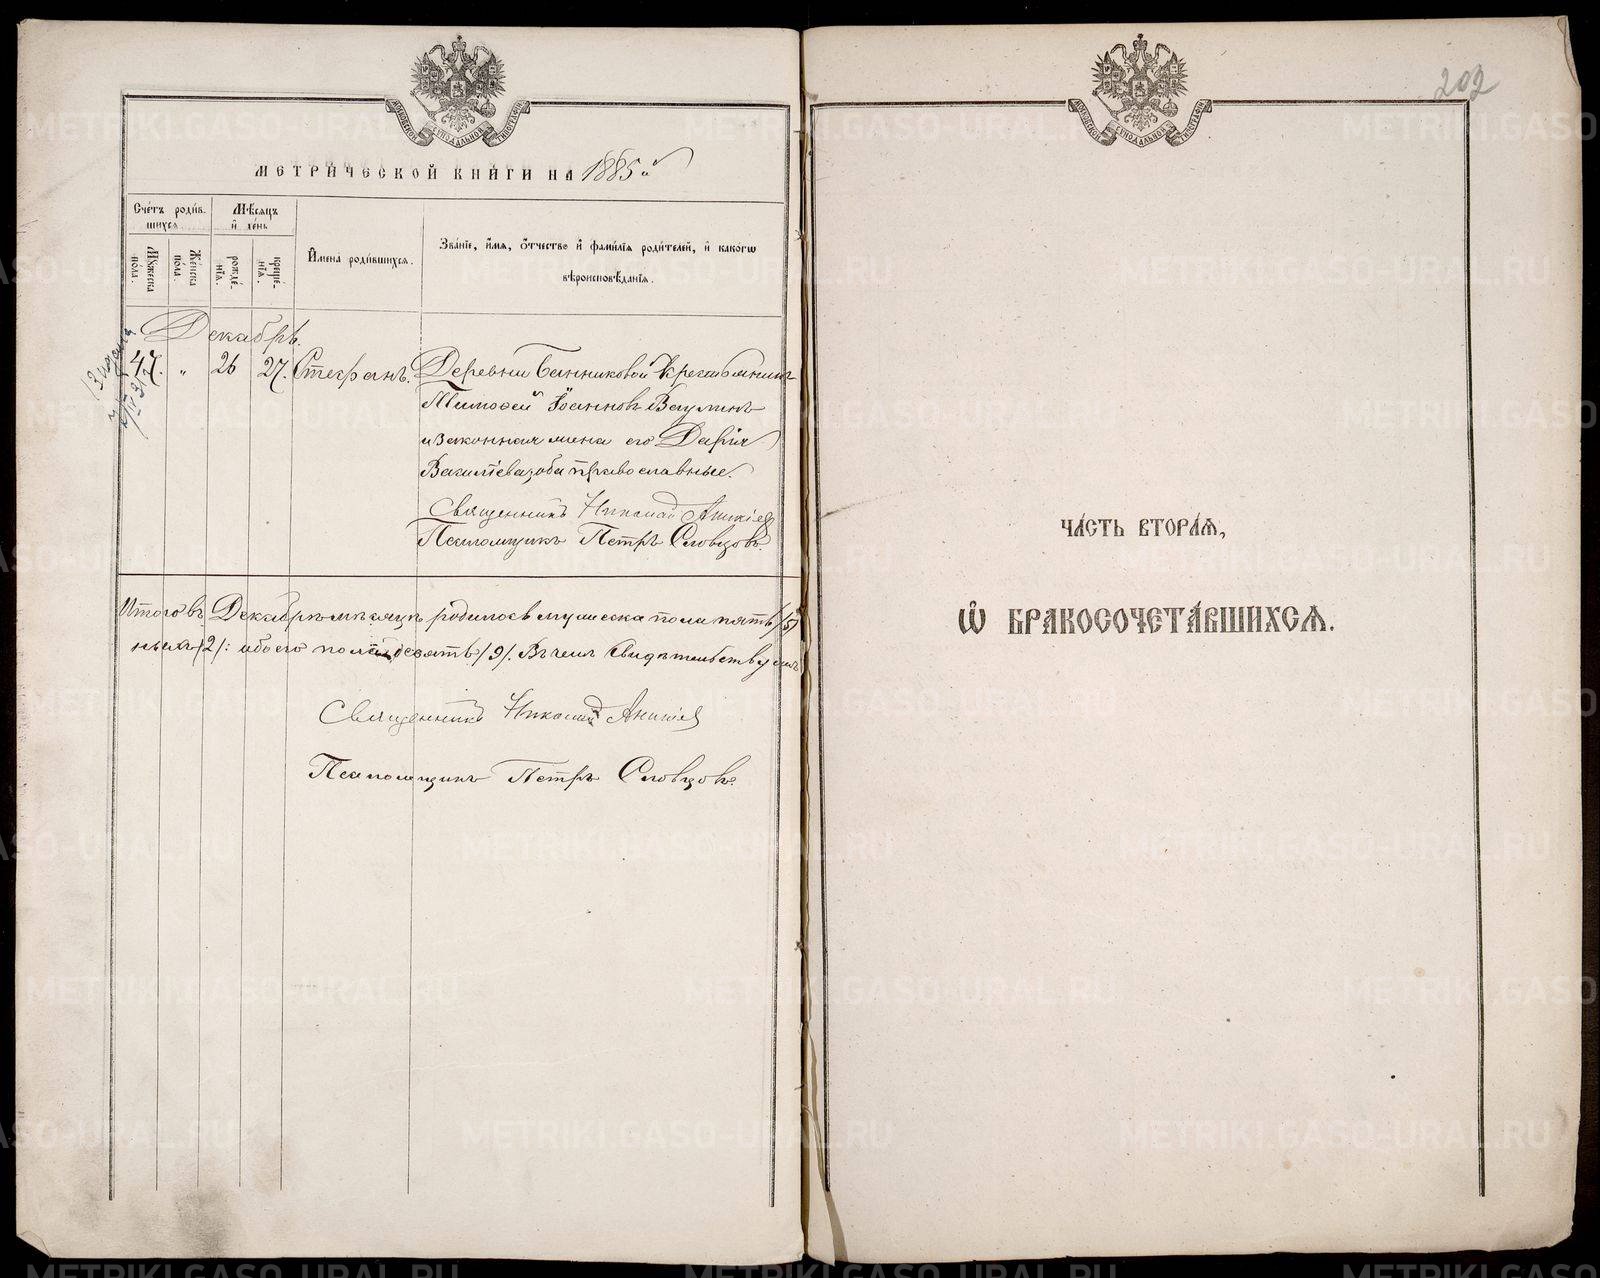 МОСКОВСКОЙ СУНОДАЛЬНОЙ ТИПОГРАФІИ
МЕТРИЧЕСКОЙ КНИГИ НА 1885 й
Счетъ родившихся.
Мѣсяцъ и день
Мужеска пола.
Женска пола.
рожденія.
крещенія.
Имена родившихся.
Званіе, имя, отчество и фамилія родителей, и какого
вѣроисповѣданія.
Декабрь.
47. " 26 27. Стефанъ. Деревни Банниковой крестьянинъ
Тимофей Іоанновъ Ваулинъ
и законная жена его Дарія
Василіева, оба православные.
Священникъ Николай Аникіев
Псаломщикъ Петръ Словцовъ.
Итого въ Декабрѣ мѣсяцѣ родилось мужеска пола пять /5/
обоего пола девять /9/. Въ чемъ Свидѣтельствуемъ
Священникъ Николай Аникіев
Псаломщикъ Петръ Словцовъ.
202
ЧАСТЬ ВТОРАЯ,
Ѡ БРАКОСОЧЕТАВШИХСЯ.
METRIKI.GASO-URAL.RU